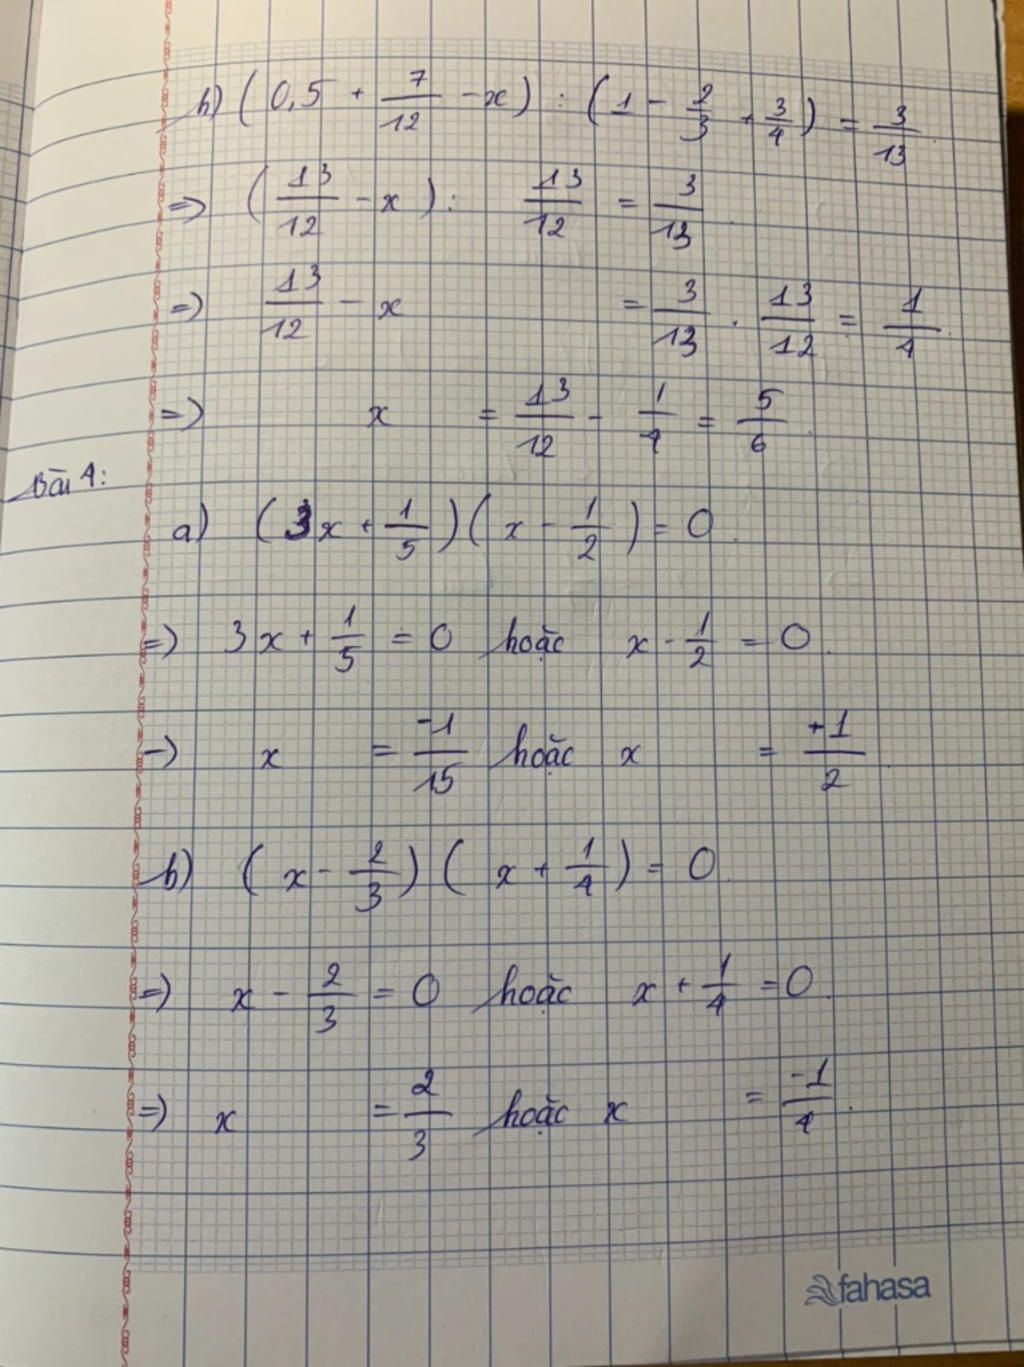 h) ( 0,5 + 7/12 - x ) : ( 1 - 2/3 + 3/4 ) = 3/13
=> ( 13/12 - x ) : 13/12 = 3/13
=> 13/12 - x = 3/13 . 13/12 = 1/4
=> x = 13/12 - 1/4 = 5/6
Bài 4:
a) ( 3x + 1/5 ) ( x - 1/2 ) = 0
=> 3x + 1/5 = 0 hoặc x - 1/2 = 0
=> x = -1/15 hoặc x = +1/2
b) ( x - 2/3 ) ( x + 1/4 ) = 0
=> x - 2/3 = 0 hoặc x + 1/4 = 0
=> x = 2/3 hoặc x = -1/4
fahasa